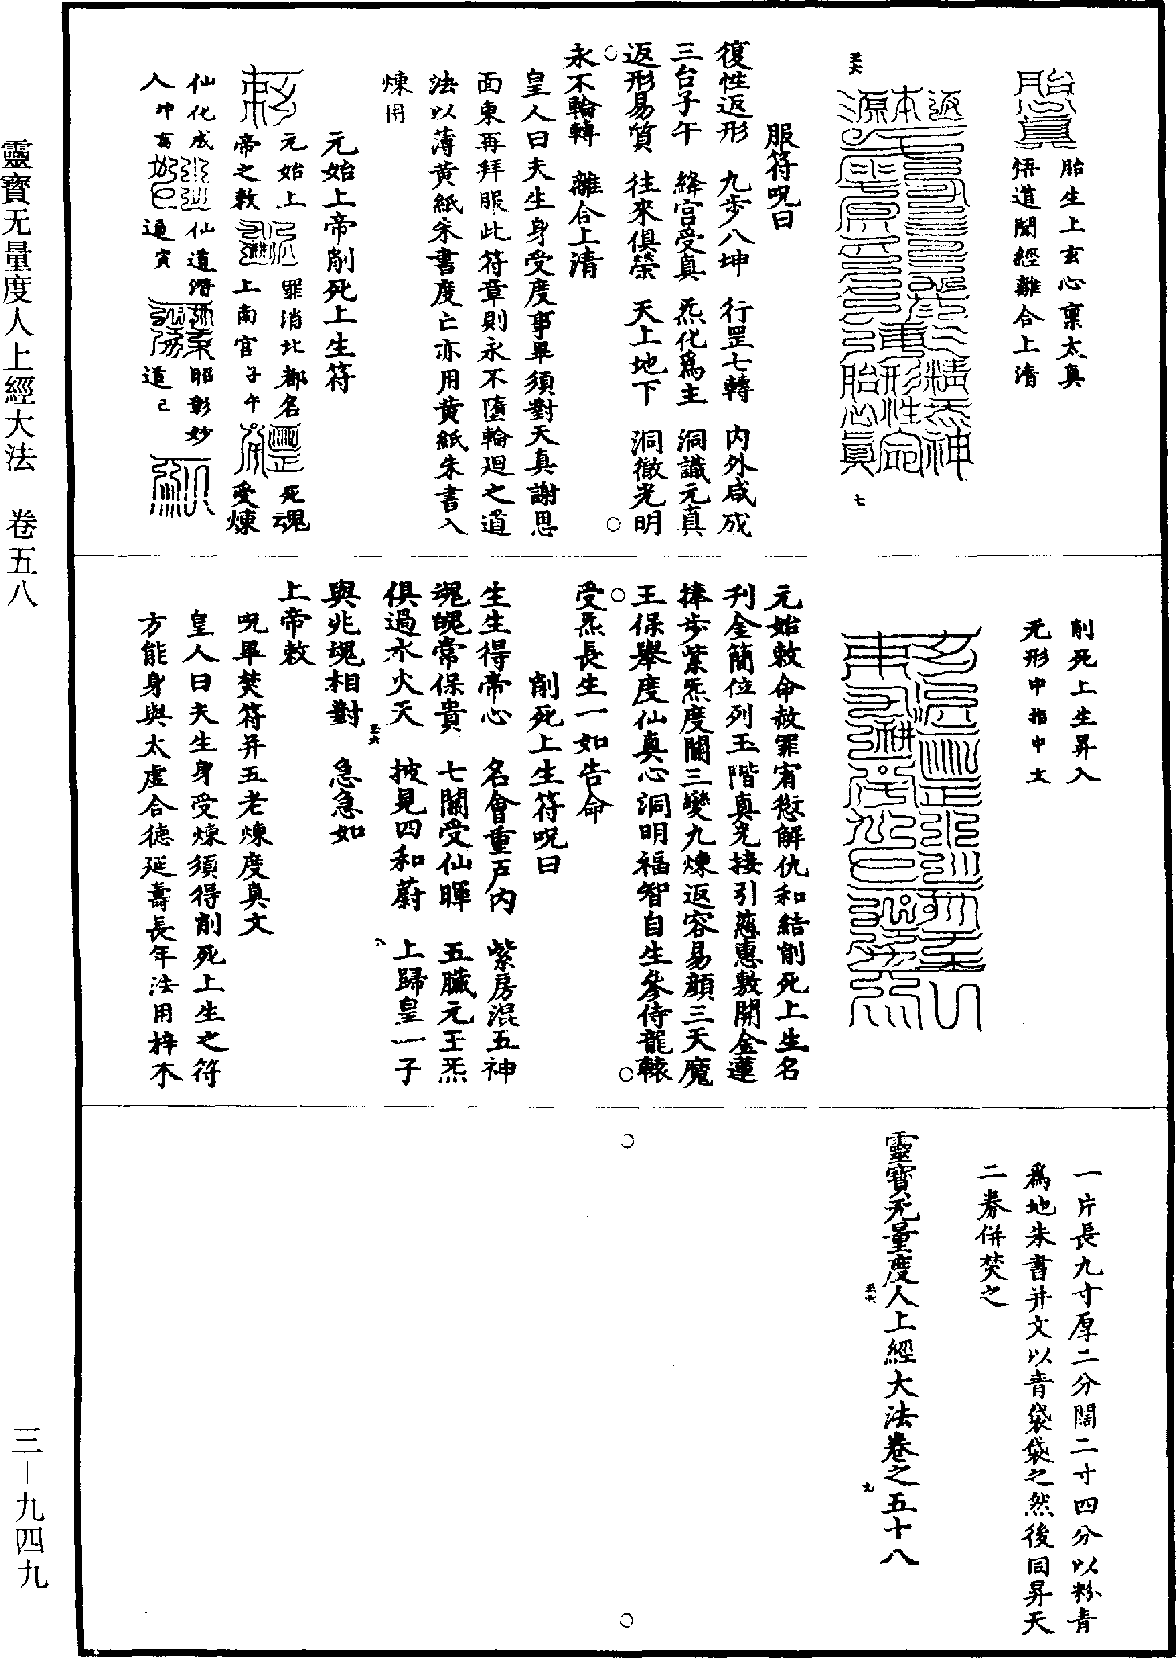 胎生上玄心稟太真
悟道聞經離合上清
五六
七
服符呪曰
復性返形　九步八坤　行罡七轉　內外咸成
三台子午　絳宮受真　炁化爲主　洞識元真
返形易質　往來俱榮　天上地下　洞徹光明
永不輪轉　離合上清
皇人曰夫生身受度事畢須對天真謝恩
面東再拜服此符章則永不墮輪迴之道
法以薄黃紙朱書度亡亦用黃紙朱書入
煉用
元始上帝削死上生符
元始上　罪消北都名　死魂
帝之敕　上南宮子午　受煉
仙化成　仙道潛　昭彰妙
人　道寅　道己
削死上生昇入
无形中指中文
元始敕命赦罪宥愆解仇和結削死上生名
刊金簡位列玉階真光接引慈惠敷開金蓮
捧步紫炁度關三變九煉返容易顏三天魔
王保舉度仙真心洞明福智自生參侍龍轅
受炁長生一如告命
削死上生符呪曰
生生得帝心　名會重戶內　紫房混五神
魂魄常保貴　七關受仙暉　五臟元王炁
俱過水火天　披見四和蔚　上歸皇一子
與兆魂相對　急急如
五六
八
上帝敕
呪畢焚符并五老煉度真文
皇人曰夫生身受煉須得削死上生之符
方能身與太虛合德延壽長年法用梓木
一片長九寸厚二分闊二寸四分以粉青
爲地朱書并文以青袋袋之然後同昇天
二券併焚之
靈寶无量度人上經大法卷之五十八
五六
九
靈寶无量度人上經大法　卷五八
三—九四九